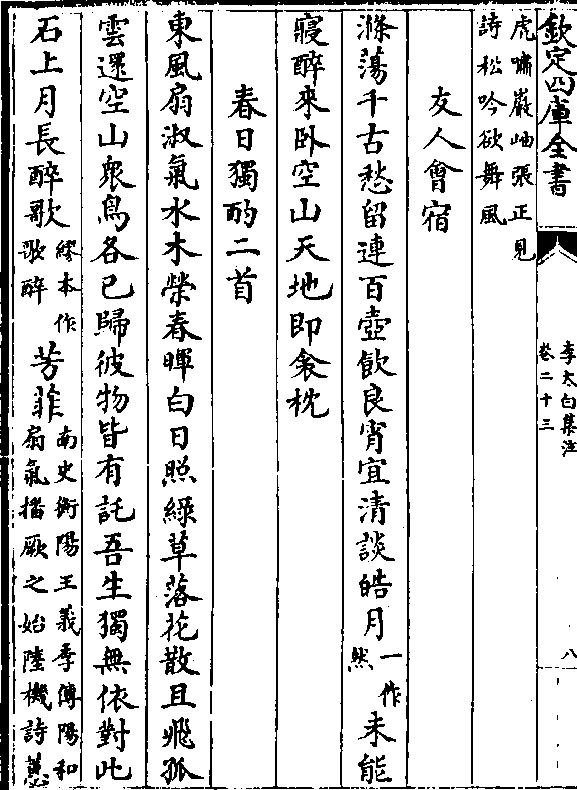 欽定四庫全書
李太白集注
卷二十三
八
虎嘯巖岫張正見
詩松吟欲舞風
友人會宿
滌蕩千古愁留連百壺飲良宵宜清談皓月一作然未能
寢醉來卧空山天地即衾枕
春日獨酌二首
東風扇淑氣水木榮春暉白日照綠草落花散且飛孤
雲還空山衆鳥各已歸彼物皆有託吾生獨無依對此
石上月長醉歌繆本作歌醉芳菲南史衡陽王義季傳陽和扇氣播厥之始陸機詩蕙